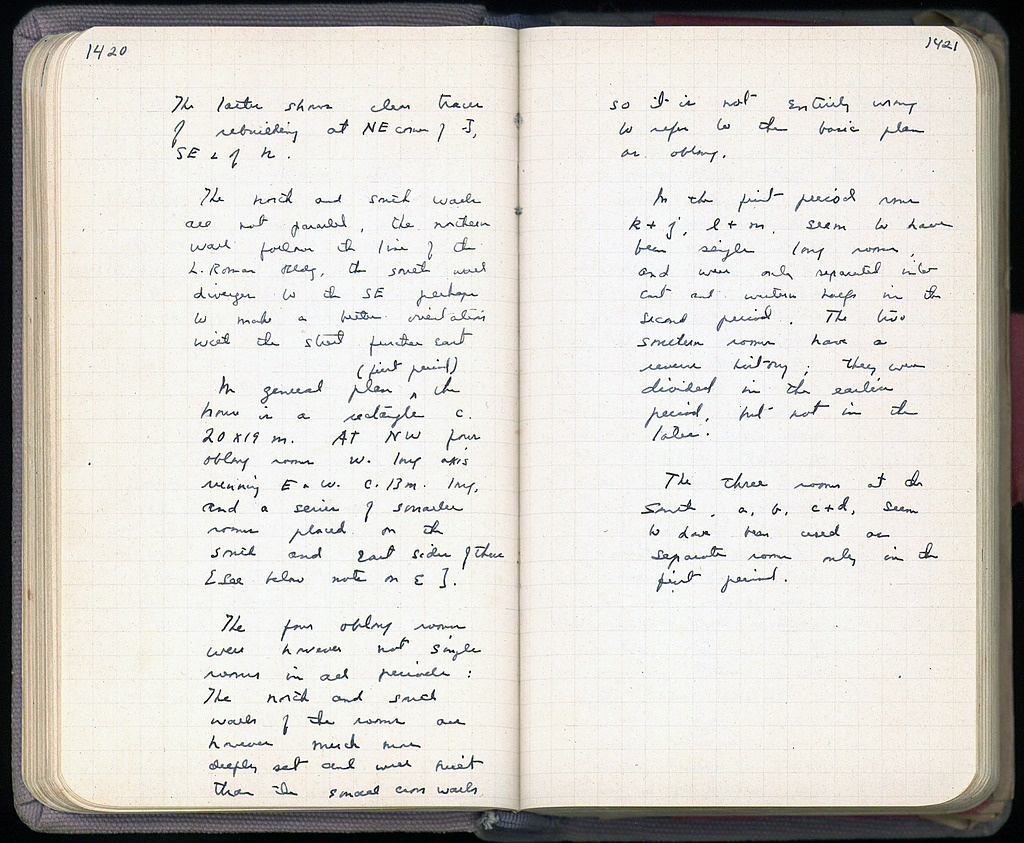 1420
The latter shows clear traces
of rebuilding at NE corner of J,
SE of k.
The north and south walls
are not parallel, the northern
wall follows the line of the
L. Roman bldg, the south wall
diverges to the SE perhaps
to make a better orientation
with the street further east
(first period)
In general plan, the
house is a rectangle c.
20 x 19 m. At NW four
oblong rooms w. long axis
running E - W. c. 13 m. long,
and a series of smaller
rooms placed on the
south and east sides of these
[See below note on E].
The four oblong rooms
were however not single
rooms in all periods:
The north and south
walls of the rooms are
however much more
deeply set and well built
than the small cross walls
1421
so it is not entirely wrong
to refer to the basic plan
as oblong.
In the first period rooms
k + j, l + m, seem to have
been single long rooms,
and were only separated into
east and western halfs in the
second period. The two
southern rooms have a
reverse history; they were
divided in the earlier
period, but not in the
later.
The three rooms at the
South, a, b, c+d, seem
to have been used as
separate rooms only in the
first period.